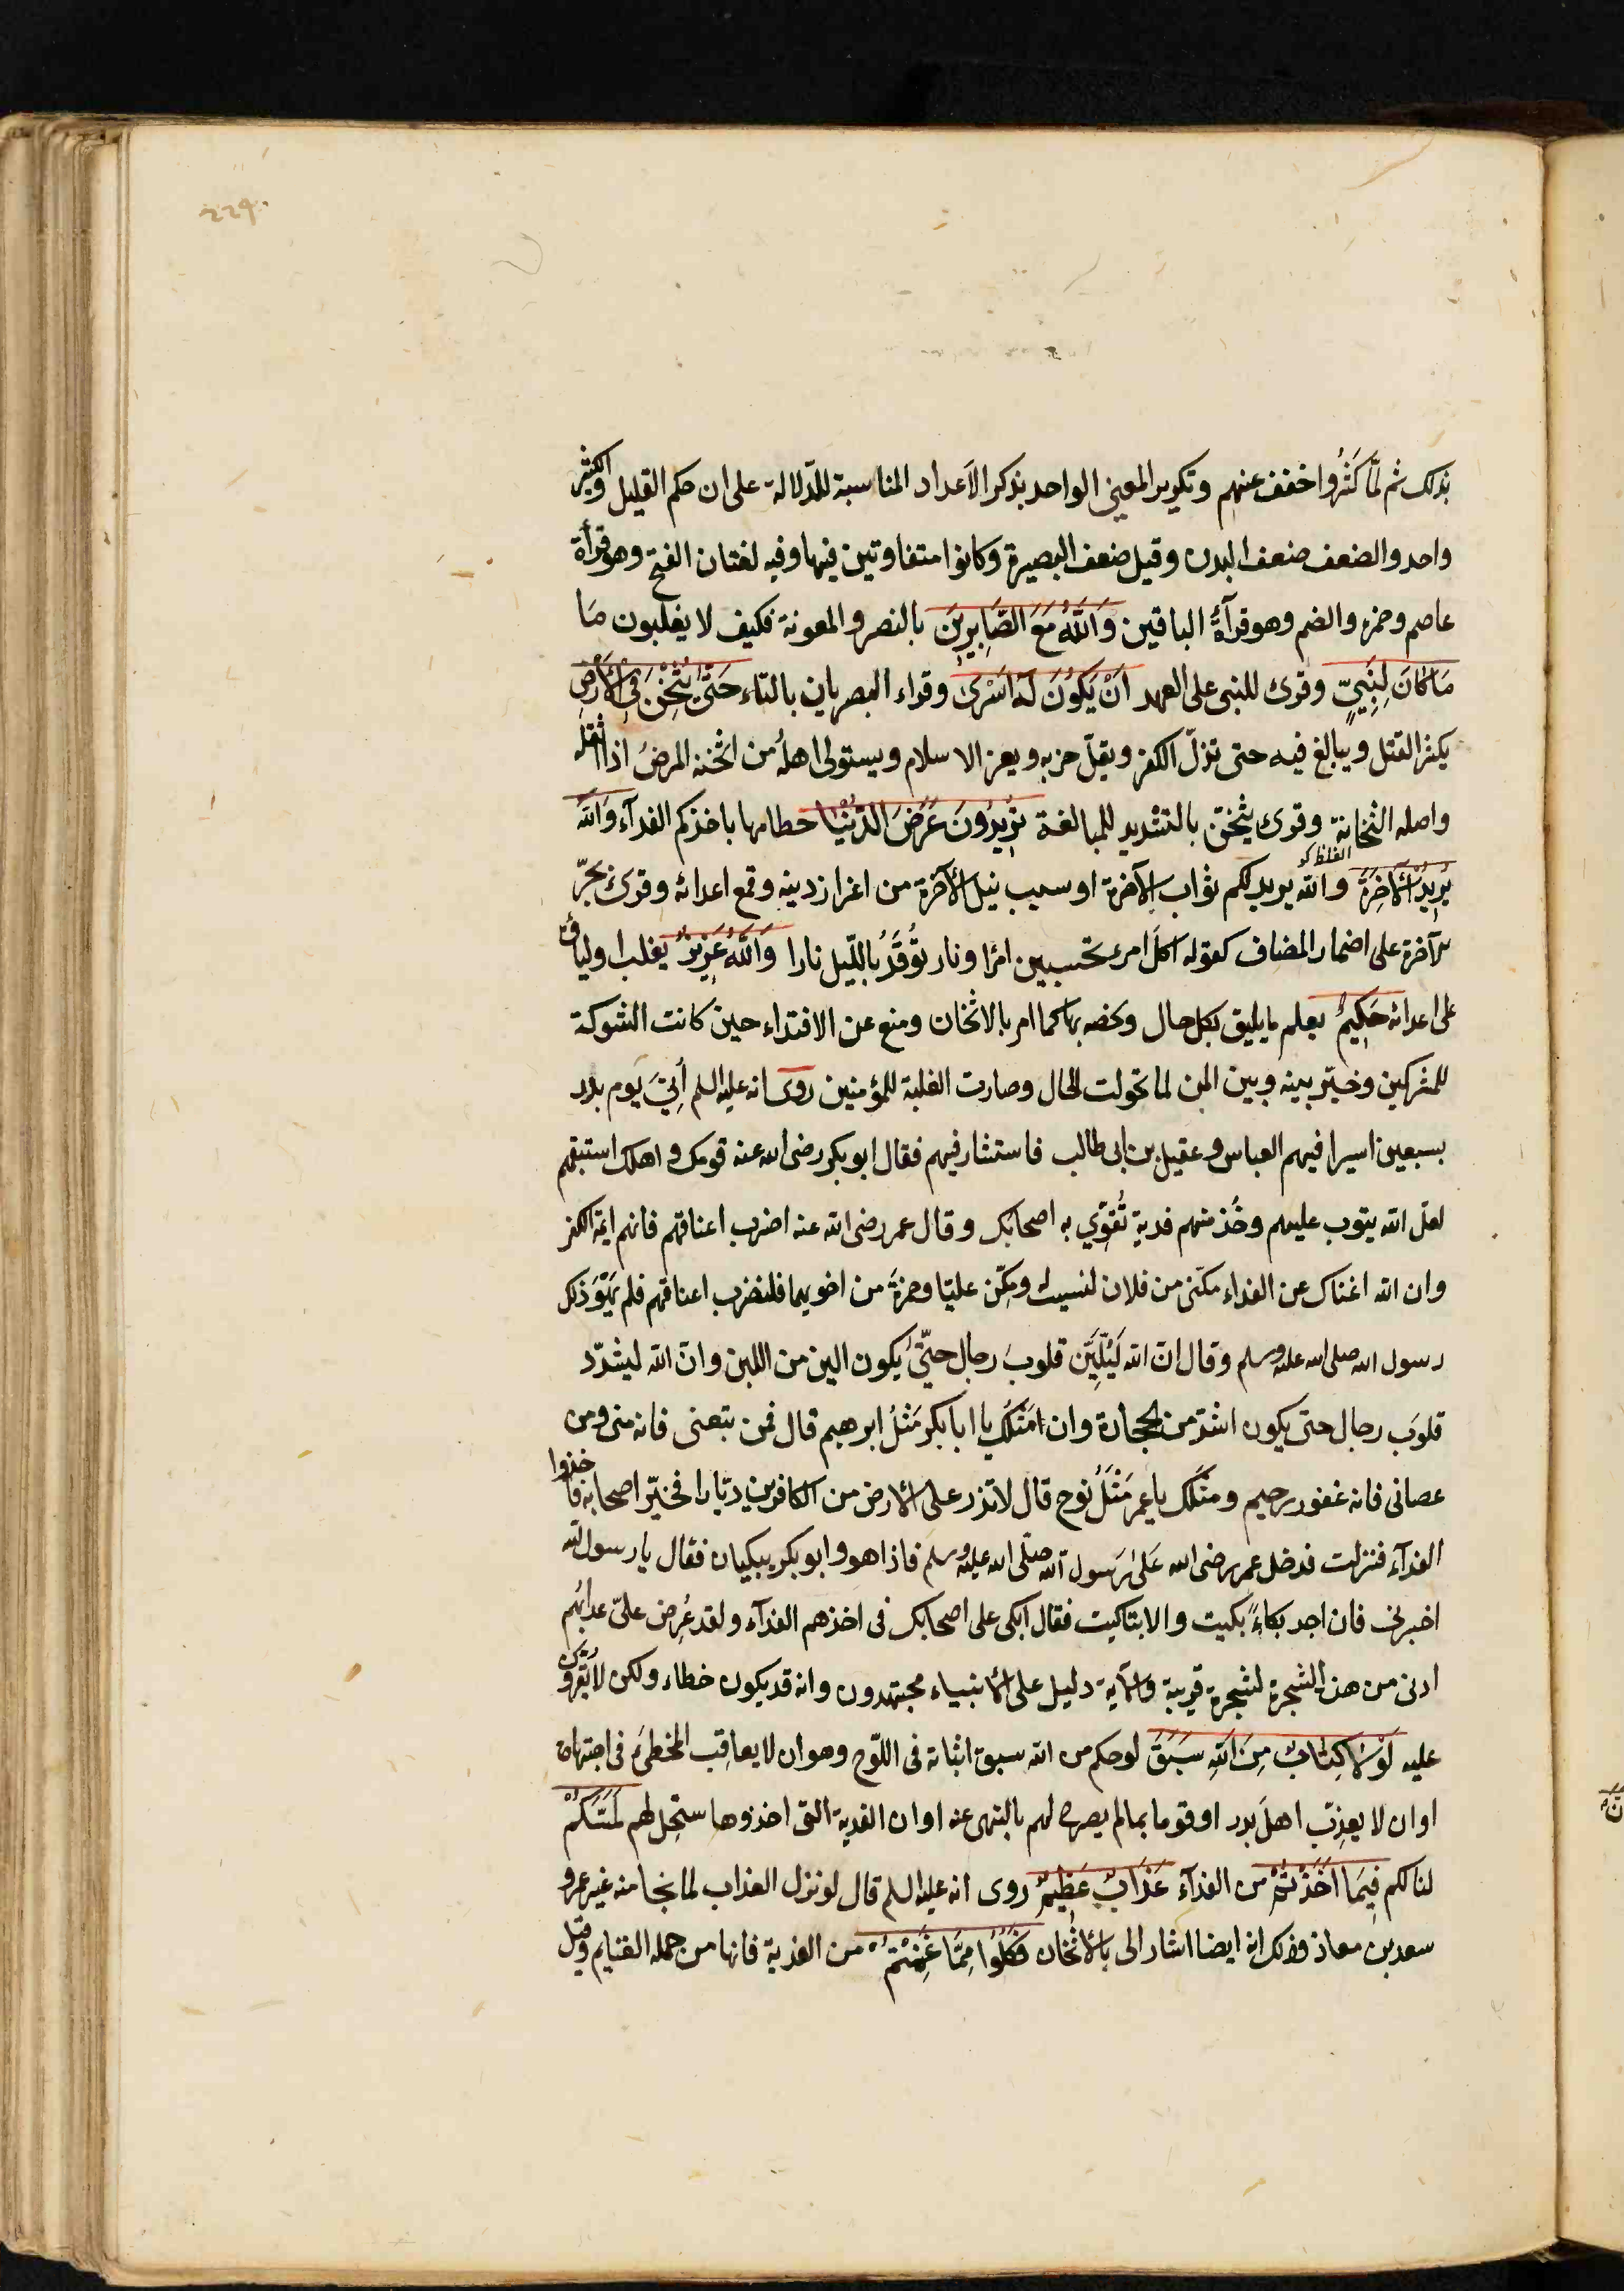 ٢٢٩
بذلك ثم لَمَّا كَثُرُوا خفف عنهم وتكرير المعنى الواحد بذكر الاَعداد المناسبة للدّلالة على ان حكم القليل والكثير
واحد والضعف ضعف البدن وقيل ضعف البصيرة وكانوا متفاوتين فيها وفيه لغتان الفتح وهو قرأة
عاصم وحمزه والضم وهو قرآءةُ الباقين وَاللّٰهُ مَعَ الصَّابِرِينَ بالنصر والمعونة فكيف لا يغلبون مَا
مَا كَانَ لِنَبِيٍّ وقرئ للنبى على العهد اَنْ يَكُونَ لَهُ اَسْرَىٰ وقراء البصريان بالتاء حَتَّىٰ يُثْخِنَ فِى الْاَرْضِ
يكثر القتل ويبالغ فيه حتى تذلّ الكفر ويقلّ حزبه ويعز الاسلام ويستولى اهلُه من اثخنه المرضُ اذا اثقله
واصله الثخانة وقرئ يُثَخِّنَ بالتشديد للمبالغة تُرِيدُونَ عَرَضَ الدُّنْيَا حطامها باخذكم الفدآء وَاللّٰهُ
الغلظ كو
يُرِيدُ الْاٰخِرَةَ والله يريد لكم ثواب الآخرة او سبب نيل الآخرة من اعزاز دينه وقمع اعدائه وقرئ بجرّ
الآخرة على اضمار المضاف كقوله اكلَّ امرئ تحسبين امرًا ونار تُوُقَّدُ باللّيل نارا وَاللّٰهُ عَزِيزٌ يغلب اوليائه
على اعدائه حَكِيمٌ يعلم ما يليق بكل حال وخصه بها كما امر بالاثخان ومنع عن الافتداء حين كانت الشوكة
للمشركين وخيّر بينه وبين المن لما تحولت الحال وصارت الغلبة للمؤمنين روى انه عليه السلم أُتِيَ يَوم بدر
بسبعين اسيرا فيهم العباس وعقيل بن ابى طالب فاستشار فيهم فقال ابو بكر رضى الله عنه قومك واهلك استبقهم
لعل الله يتوب عليهم وخُذ منهم فدية تُقَوِّي به اصحابك وقال عمر رضى الله عنه اضرب اعناقهم فانهم ائمة الكفر
وان الله اغناك عن الفداء مكنّى من فلان لنسيب ومكِّن عليّا وحمزةَ من اخويهما فلنضرب اعناقهم فلم يَهْوَ ذلك
رسول الله صلى الله عليه وسلم وقال انّ الله لَيُلَيِّنُ قلوبَ رجال حتّىٰ يكون الين من اللبن وانّ الله ليشدّد
قلوَب رجال حتى يكون اشدّ من الحجارة وان مَثَلَكَ يا ابا بكر مَثَلُ ابرهيم قال فمن تبعنى فانه منى ومن
عصانى فانه غفور رحيم ومثَلُك يا عمر مَثَلُ نوح قال لا تذر على الارض من الكافرين ديّارا فخيّر اصحابه فاخذوا
الفدآء فنزلت فدخل عمر رضى الله عَلىٰ رَسول الله صلّى الله عليه وسلم فاذا هو وابو بكر يبكيان فقال يا رسول الله
اخبرنى فان اجد بكاءً بكيت والا بتاكيت فقال ابكى على اصحابك فى اخذهم الفدآء ولقد عُرِض علىّ عذابُهم
ادنى من هذه الشجرة لشجرة قريبة والآية دليل على ان الانبياء مجتهدون وانه قد يكون خطاء ولكن لا يُقَرُّون
عليه لَوْلَا كِتَابٌ مِنَ اللّٰهِ سَبَقَ لولا حكم من الله سبق اثباته فى اللوّح وهو ان لا يعاقِب المخطئ فى اجتهاده
او ان لا يعذِّب اهلَ بدر او قوما بما لم يصرح لهم بالنهى عنه او ان الفدية التى اخذوها ستحِل لهم لَمَسَّكُمْ
لنالكم فِيمَا اَخَذْتُمْ من الفدآء عَذَابٌ عَظِيمٌ روى انه عليه السلم قال لو نزل العذاب لما نجا منه غير عمر و
سعد بن معاذ وذلك لانه ايضا اشار الى بالاثخان فَكُلُوا مِمَّا غَنِمْتُمْ من الفدية فانها من جمله الغنايم وقيل